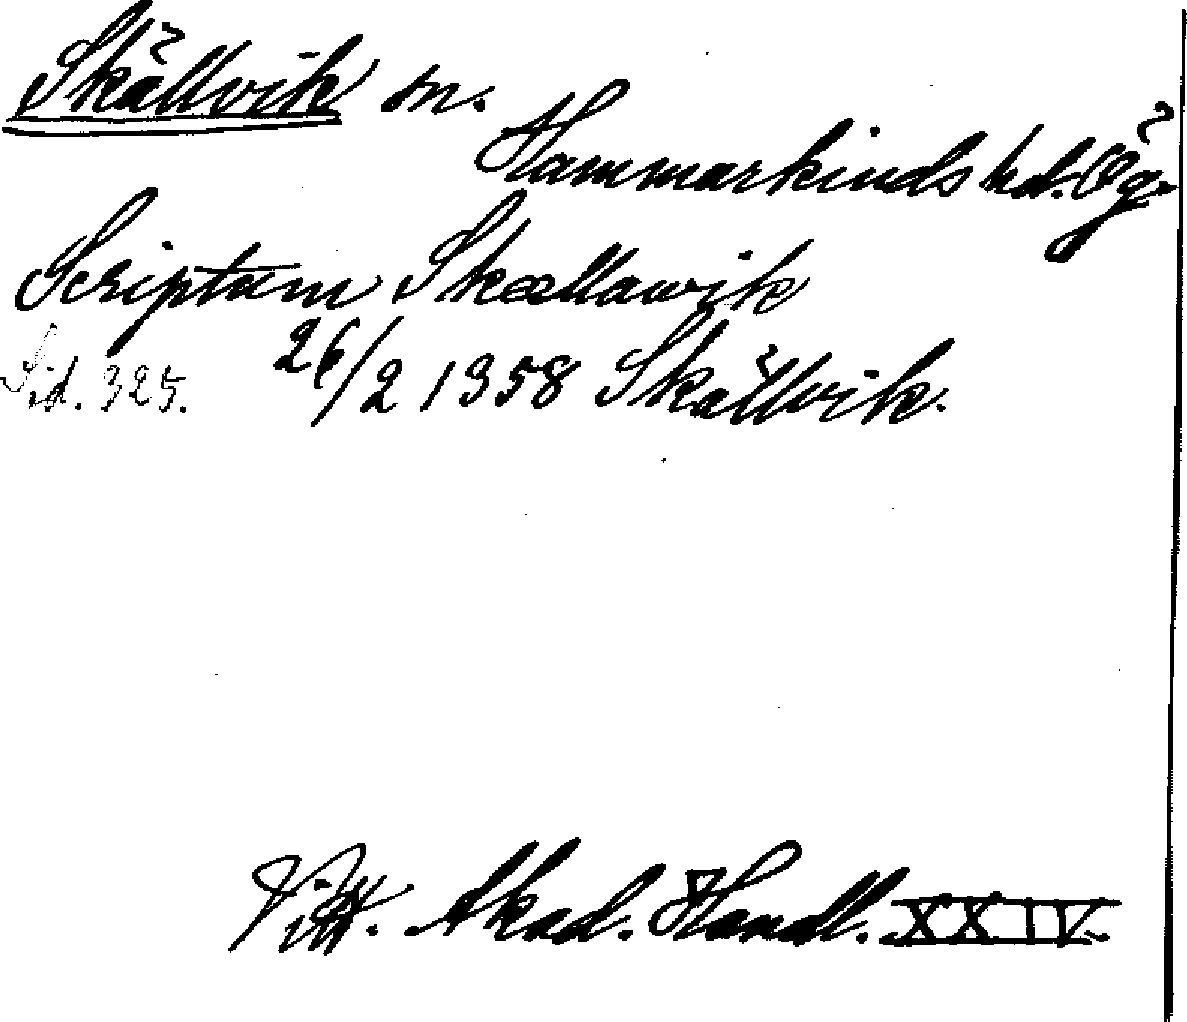 Skällvik sn.
Hammarkinds hd. Ög.
Scriptum Skællawik
26/2 1358 Skällvik.
Sid. 325.
Vitt. Akad. Handl. XXIV.